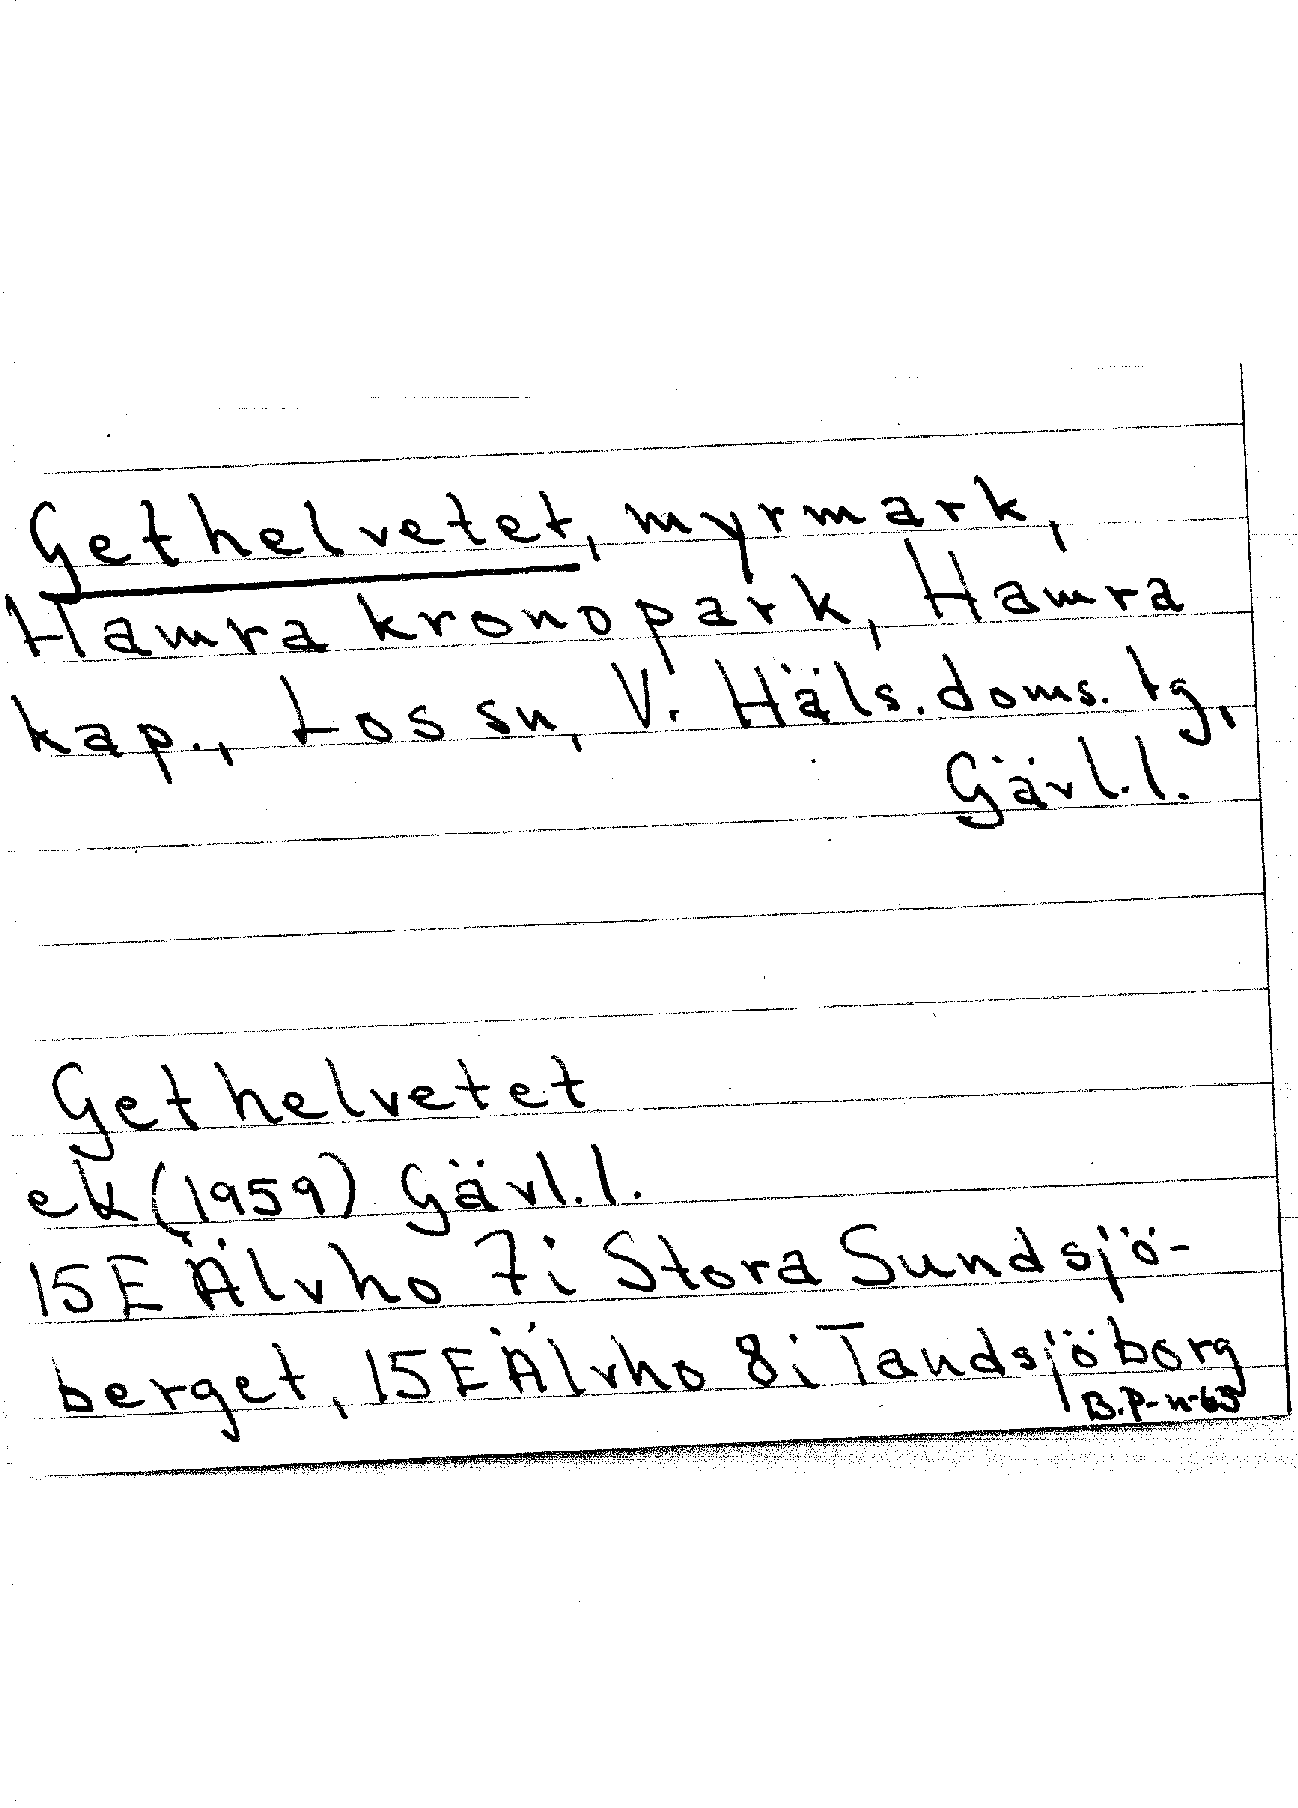 Gethelvetet, myrmark,
Hamra kronopark, Hamra
kap., Los sn, V. Häls. doms. tg,
Gävl. l.
Gethelvetet
ek (1959) Gävl. l.
15E Älvho 7i Stora Sundsjö-
berget, 15E Älvho 8i Tandsjöborg
B.P-n-63